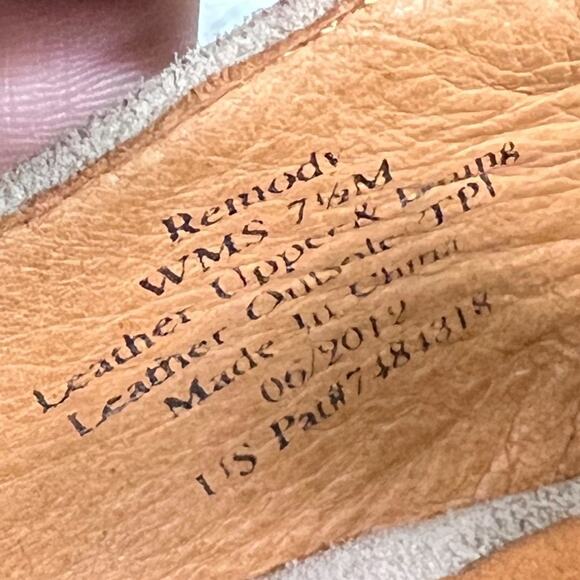 Remody
WMS 7½M
Leather Upper & Lining
Leather Outsole/TPR
Made In China
06/2012
US Pat#7484318